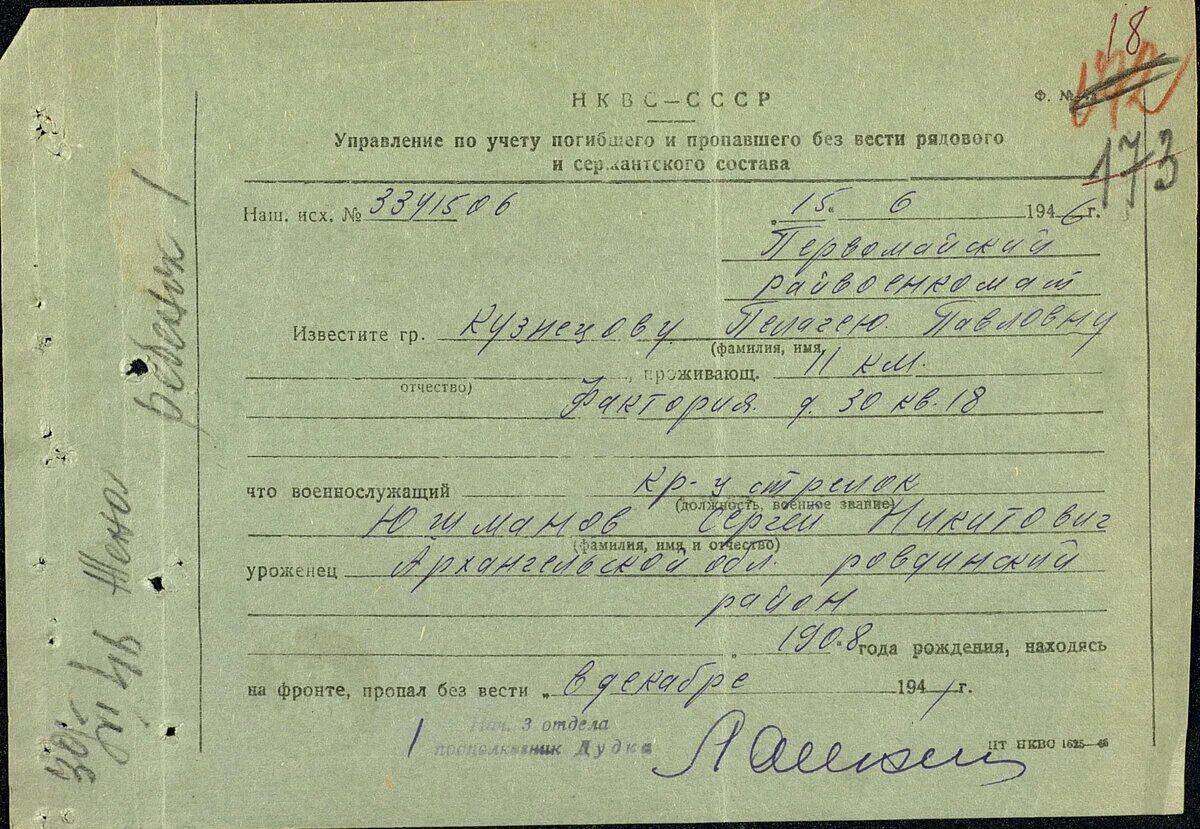 18
173
НКВС—СССР
Ф. №
Управление по учету погибшего и пропавшего без вести рядового
и сержантского состава
Наш. исх. № 3341506
„15" 6 1946 г.
Первомайский
райвоенкомат
Известите гр. Кузнецову Пелагею Павловну
(фамилия, имя,
отчество) , проживающ. 11 км.
Фактория д. 30 кв. 18
что военнослужащий кр-ц стрелок
(должность, военное звание)
Югиманов Сергей Никитович
(фамилия, имя и отчество)
уроженец Архангельской обл. ровдинский
район
1908 года рождения, находясь
на фронте, пропал без вести „ в декабре 1941 г.
Нач. 3 отдела
подполковник Дудка
ПТ НКВО 1625—46
Жена
ребенок 1